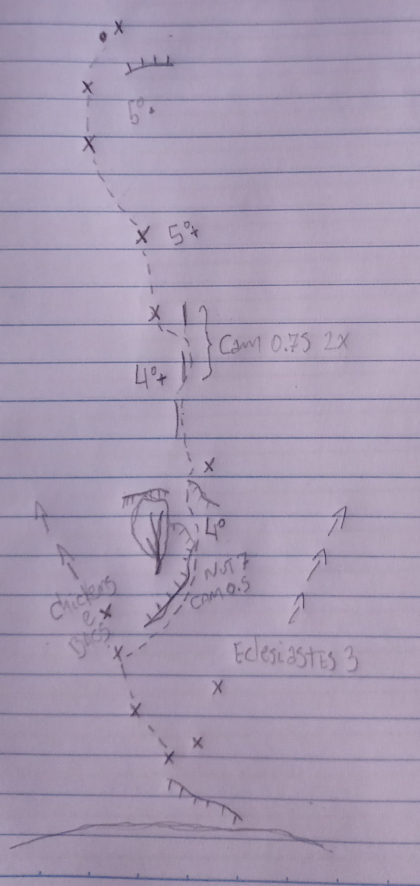 5°
5°+
Cam 0.75 2X
4°+
4°
NUT 7
CAM 0.5
Chickens
e
Eclesiastes 3